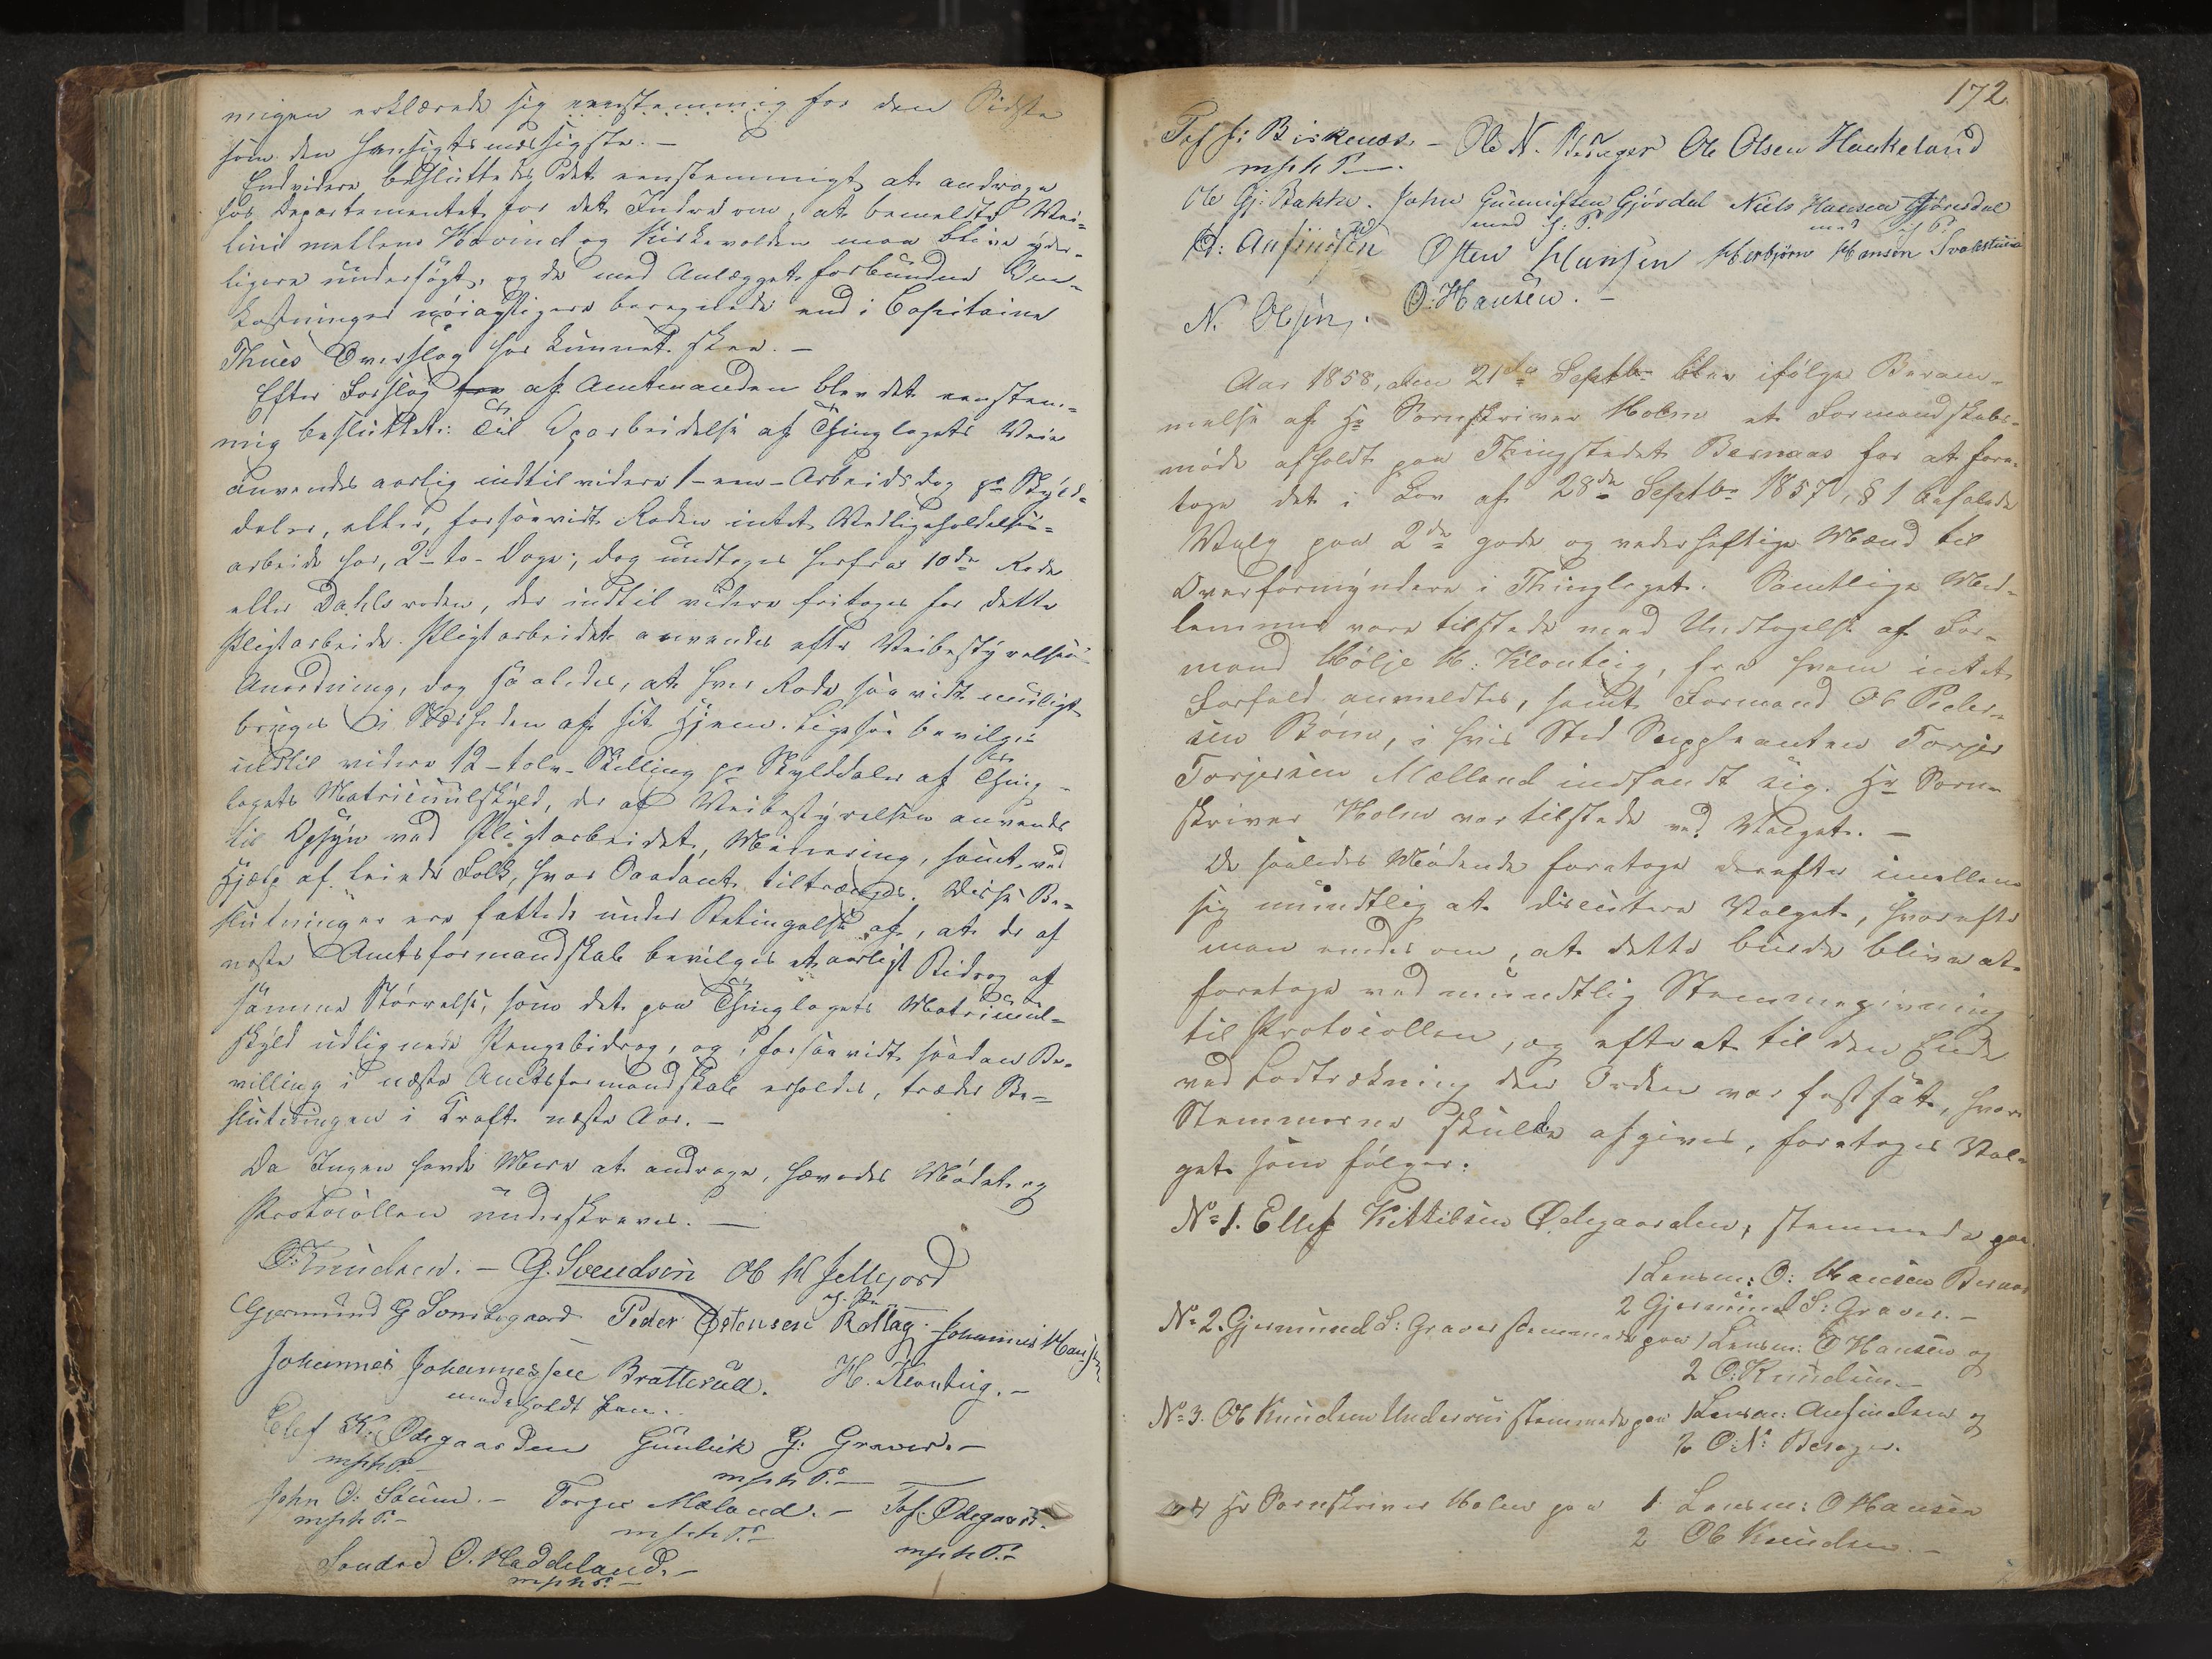 ningen erklærede sig eenstemmig for den Sidste
som den hensigtsmæssigste. —
Endvidere besluttedes det eenstemmigt at andrage
hos Departementet for det Indre om, at bemeldte Vei-
linie mellem Hovind og Kirkevolden maa blive yder-
ligere undersøgt, og de med Anlægget forbundne Om-
kostninger nøiagtigere beregnede end i Capitaine
Thues Overslag har kunnet skee. —
Efter Forslag af Amtmanden blev det eenstem-
mig besluttet: Til Oparbeidelse af Thinglagets Veie
anvendes aarlig indtil videre 1 - een - Arbeidsdag pr Skyld-
daler, eller, forsaavidt Roden intet Vedligeholdelses-
arbeide har, 2 - to - Dage; dog undtages herfra 10de Rode
eller Dahls roden, der indtil videre fritages for dette
Pligtarbeide. Pligtarbeidet anvendes efter Veibestyrelsens
Anordning, dog saaledes, at hver Rode saavidt muligt
bruges i Nærheden af sit Hjem. Ligesaa bevilges
indtil videre 12 - tolv - Skilling pr Skylddaler af Thing-
lagets Matriculskyld, der af Veibestyrelsen anvendes
til Opsyn ved Pligtarbeidet, Minering, samt ved
Hjælp af leiede Folk, hvor Saadant tiltrænges. Disse Be-
slutninger ere fattede under Betingelse af, at der af
næste Amtsformandskab bevilges et aarligt Bidrag af
samme Størrelse, som det paa Thinglagets Matricul-
skyld udlignede Pengebidrag, og, forsaavidt saadan Be-
villing i næste Amtsformandskab erholdes, træder Be-
slutningen i Kraft næste Aar. —
Da Ingen havde Mere at andrage, hævedes Mødet og
Protocollen underskreves. —
O: Knudsen. — G. Svendsen Ole H Jellejord
Gjermund G Sondregaard Peder Østensen Rollag. Johannes Hansen
Johannes Johannessen Bratterud. H. Klonteig. —
med holdt Pen.
Ellef K: Ødegaarden Gunleik G: Graver. —
m. p. h. P. — m. p. h. P. —
John O: Söum. — Torger Mæland. — Tof. Ødegaard.
m. p. h. P. — m. p. h. P. — m. p. h. P. —
Sondre O. Haddeland. —
m. p. h. P. —
172.
Birkenes. — Ole N. Ole Olsen Haukeland
m. p. h. P. —
Ole Gj: Bakke. John Gunnulfsen Gjørdal Niels Hansen Gjøresdal
med h: P. med h P.
O: Anfindsen Osten Hansen Herbjørn Hansen
N. Olsen. O: Hansen. —
Aar 1858, den 21de Septbr blev ifølge Beram-
melse af Hr Sorenskriver Holm et Formandskabs-
møde afholdt paa Thingstedet Bernaas for at fore-
tage det i Lov af 28de Septbr 1857, § 1 befalede
Valg paa 2de gode og vederhæftige Mænd til
Overformyndere i Thinglaget. Samtlige Med-
lemmer vare tilstede med Undtagelse af For-
mand Hølje H: Klonteig, fra hvem intet
Forfald anmeldtes, samt Formand Ole Peder-
sen Bøen, i hvis Sted Suppleanten Torjer
Torjersen Mælland indfandt sig. Hr Soren-
skriver Holm var tilstede ved Valget. —
De saaledes Mødende foretoge derefter imellem
sig mundtlig at discutere Valget, hvorefter
man enedes om, at dette burde blive at
foretage ved mundtlig Stemmegivning
til Protocollen, og efterat til den Ende
ved Lodtrækning den Orden var fastsat, hvori
Stemmerne skulde afgives, foretoges Val-
get som følger:
No 1. Ellef Kittilsen Ødegaarden, stemmede paa
1 Lensm: O: Hansen Bernaas
2 Gjermund S: Graver. —
No 2. Gjermund S: Graver stemmede paa 1 Lensm: O Hansen og
2 O: Knudsen —
No 3. Ole Knudsen stemmede paa 1 Lensm: Anfindsen og
2 O: N:
Hr Sorenskriver Holm paa 1 Lensm: O Hansen
2 Ole Knudsen. —